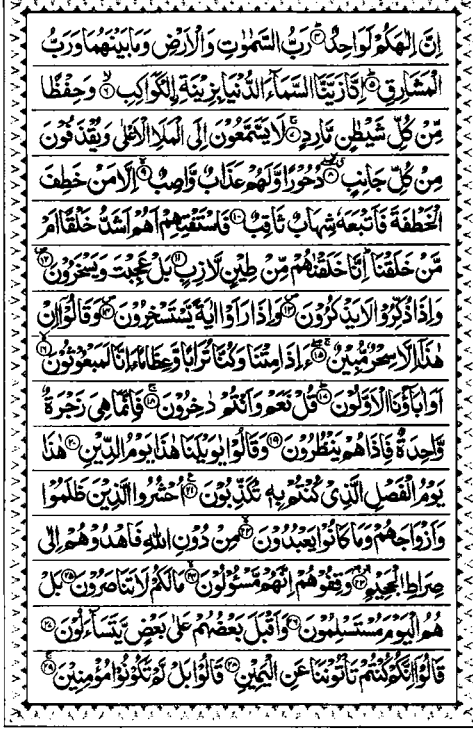 اِنَّ اِلٰهَكُمْ لَوَاحِدٌ ۝۴ رَبُّ السَّمٰوٰتِ وَالْاَرْضِ وَمَا بَيْنَهُمَا وَرَبُّ
الْمَشَارِقِ ۝۵ اِنَّا زَيَّنَّا السَّمَآءَ الدُّنْيَا بِزِيْنَةِ ࣙالْكَوَاكِبِ ۝۶ وَحِفْظًا
مِّنْ كُلِّ شَيْطٰنٍ مَّارِدٍ ۝۷ لَا يَسَّمَّعُوْنَ اِلَى الْمَلَاِ الْاَعْلٰى وَيُقْذَفُوْنَ
مِنْ كُلِّ جَانِبٍ ۝۸ دُحُوْرًا وَّلَهُمْ عَذَابٌ وَّاصِبٌ ۝۹ اِلَّا مَنْ خَطِفَ
الْخَطْفَةَ فَاَتْبَعَهٗ شِهَابٌ ثَاقِبٌ ۝۱۰ فَاسْتَفْتِهِمْ اَهُمْ اَشَدُّ خَلْقًا اَمْ
مَّنْ خَلَقْنَا ؕ اِنَّا خَلَقْنٰهُمْ مِّنْ طِيْنٍ لَّازِبٍ ۝۱۱ بَلْ عَجِبْتَ وَيَسْخَرُوْنَ ۝۱۲
وَاِذَا ذُكِّرُوْا لَا يَذْكُرُوْنَ ۝۱۳ وَاِذَا رَاَوْا اٰيَةً يَّسْتَسْخِرُوْنَ ۝۱۴ وَقَالُوْٓا اِنْ
هٰذَآ اِلَّا سِحْرٌ مُّبِيْنٌ ۝۱۵ ءَاِذَا مِتْنَا وَكُنَّا تُرَابًا وَّعِظَامًا ءَاِنَّا لَمَبْعُوْثُوْنَ ۝۱۶
اَوَاٰبَآؤُنَا الْاَوَّلُوْنَ ۝۱۷ قُلْ نَعَمْ وَاَنْتُمْ دٰخِرُوْنَ ۝۱۸ فَاِنَّمَا هِيَ زَجْرَةٌ
وَّاحِدَةٌ فَاِذَا هُمْ يَنْظُرُوْنَ ۝۱۹ وَقَالُوْا يٰوَيْلَنَا هٰذَا يَوْمُ الدِّيْنِ ۝۲۰ هٰذَا
يَوْمُ الْفَصْلِ الَّذِيْ كُنْتُمْ بِهٖ تُكَذِّبُوْنَ ۝۲۱ اُحْشُرُوا الَّذِيْنَ ظَلَمُوْا
وَاَزْوَاجَهُمْ وَمَا كَانُوْا يَعْبُدُوْنَ ۝۲۲ مِنْ دُوْنِ اللّٰهِ فَاهْدُوْهُمْ اِلٰى
صِرَاطِ الْجَحِيْمِ ۝۲۳ وَقِفُوْهُمْ اِنَّهُمْ مَّسْـُٔوْلُوْنَ ۝۲۴ مَا لَكُمْ لَا تَنَاصَرُوْنَ ۝۲۵ بَلْ
هُمُ الْيَوْمَ مُسْتَسْلِمُوْنَ ۝۲۶ وَاَقْبَلَ بَعْضُهُمْ عَلٰى بَعْضٍ يَّتَسَآءَلُوْنَ ۝۲۷
قَالُوْٓا اِنَّكُمْ كُنْتُمْ تَاْتُوْنَنَا عَنِ الْيَمِيْنِ ۝۲۸ قَالُوْا بَلْ لَّمْ تَكُوْنُوْا مُؤْمِنِيْنَ ۝۲۹